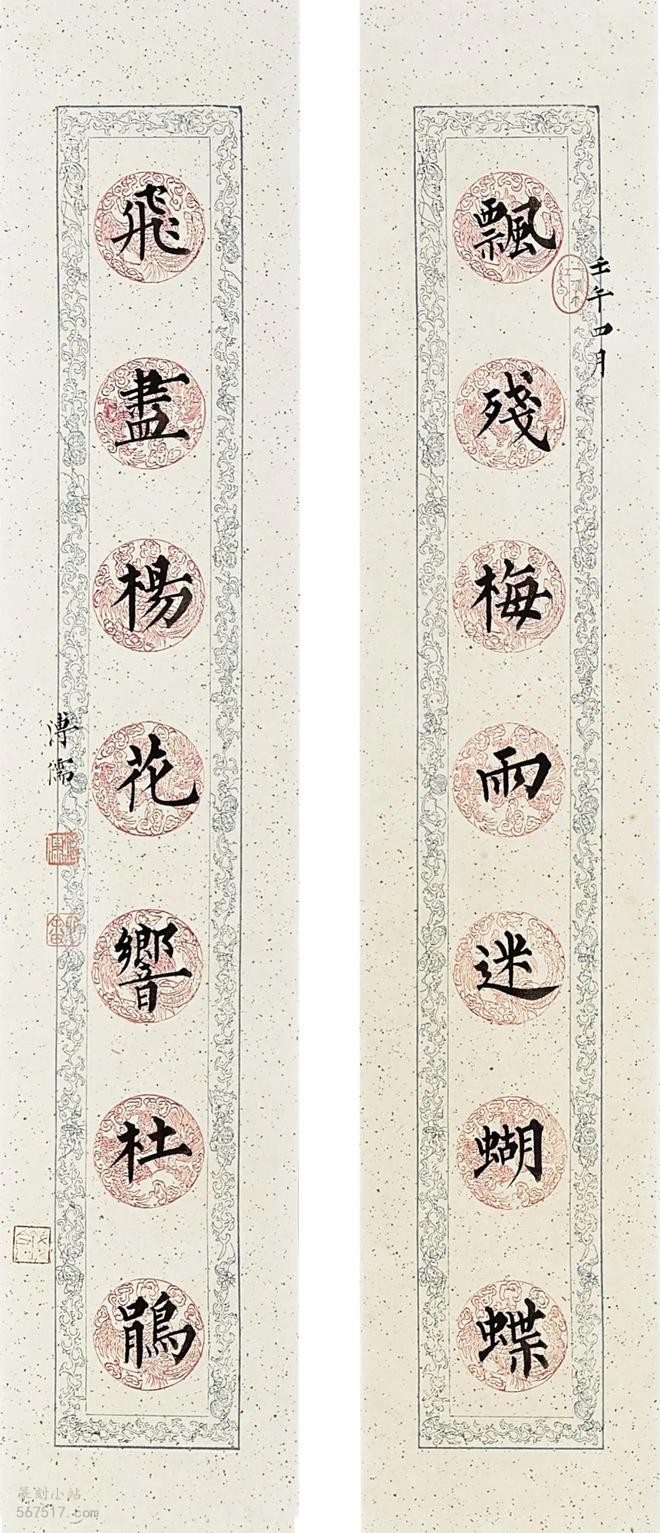 壬午四月
飄殘梅雨迷蝴蝶
飛盡楊花響杜鵑
溥儒
篆刻小站
567517.com